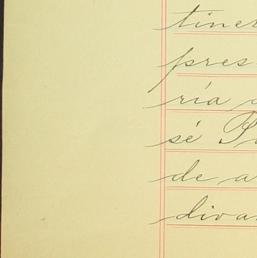 tiner
pres
ría
sé
de a
diva